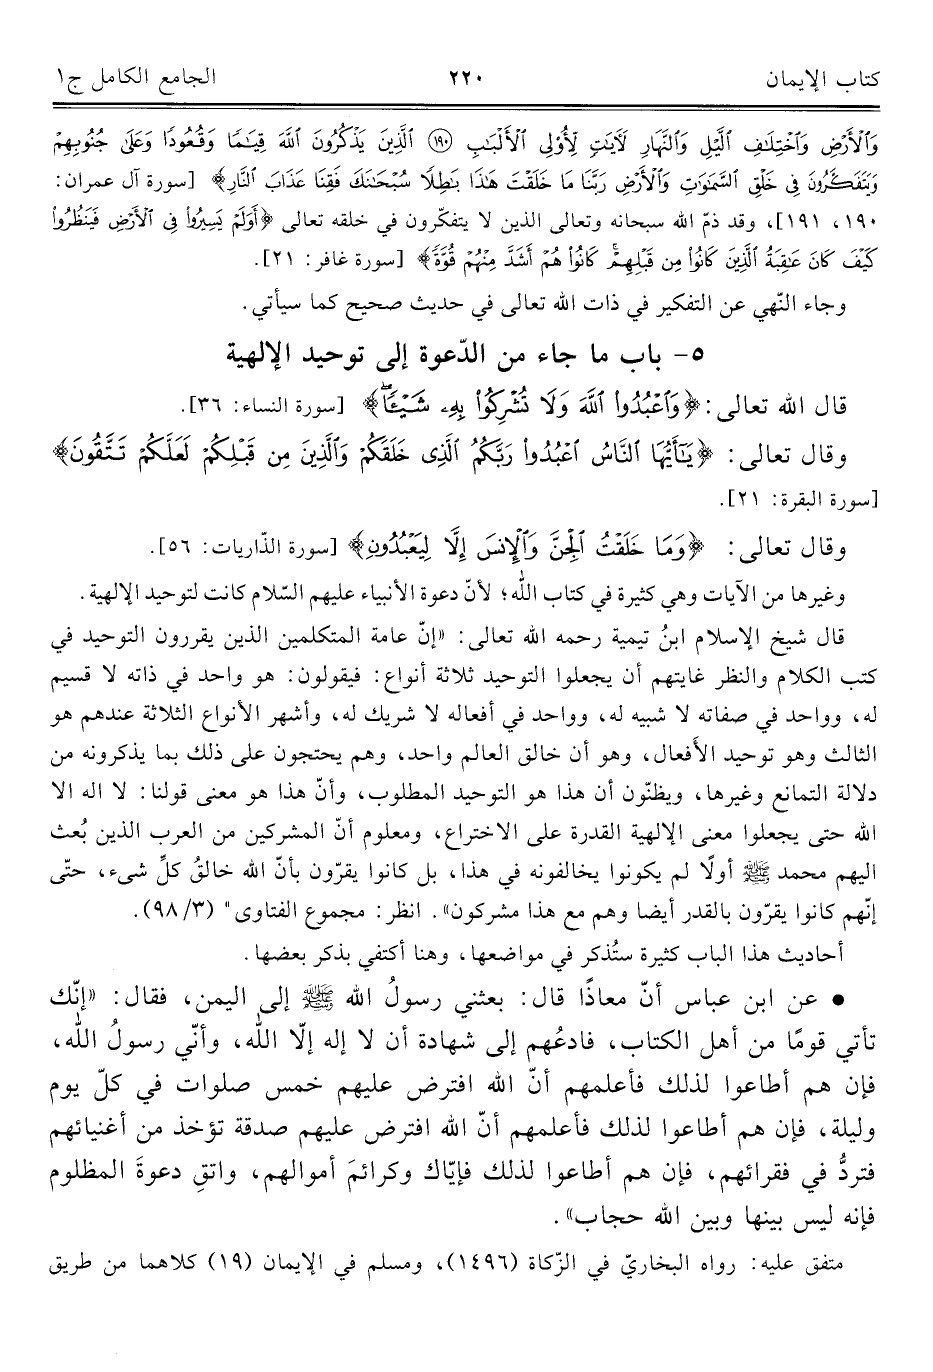 كتاب الإيمان ٢٢٠ الجامع الكامل ج١
وَٱلْأَرْضِ وَٱخْتِلَـٰفِ ٱلَّيْلِ وَٱلنَّهَارِ لَأٓيَـٰتٍ لِّأُو۟لِى ٱلْأَلْبَـٰبِ ﴿١٩٠﴾ ٱلَّذِينَ يَذْكُرُونَ ٱللَّهَ قِيَـٰمًا وَقُعُودًا وَعَلَىٰ جُنُوبِهِمْ
وَيَتَفَكَّرُونَ فِى خَلْقِ ٱلسَّمَـٰوَٰتِ وَٱلْأَرْضِ رَبَّنَا مَا خَلَقْتَ هَـٰذَا بَـٰطِلًا سُبْحَـٰنَكَ فَقِنَا عَذَابَ ٱلنَّارِ﴾ [سورة آل عمران:
١٩٠، ١٩١]، وقد ذمّ الله سبحانه وتعالى الذين لا يتفكّرون في خلقه تعالى ﴿أَوَلَمْ يَسِيرُوا۟ فِى ٱلْأَرْضِ فَيَنظُرُوا۟
كَيْفَ كَانَ عَـٰقِبَةُ ٱلَّذِينَ كَانُوا۟ مِن قَبْلِهِمْ ۚ كَانُوا۟ هُمْ أَشَدَّ مِنْهُمْ قُوَّةً﴾ [سورة غافر: ٢١].
وجاء النّهي عن التفكير في ذات الله تعالى في حديث صحيح كما سيأتي.
٥- باب ما جاء من الدّعوة إلى توحيد الإلهية
قال الله تعالى: ﴿وَٱعْبُدُوا۟ ٱللَّهَ وَلَا تُشْرِكُوا۟ بِهِۦ شَيْـًٔا ۖ﴾ [سورة النساء: ٣٦].
وقال تعالى: ﴿يَـٰٓأَيُّهَا ٱلنَّاسُ ٱعْبُدُوا۟ رَبَّكُمُ ٱلَّذِى خَلَقَكُمْ وَٱلَّذِينَ مِن قَبْلِكُمْ لَعَلَّكُمْ تَتَّقُونَ﴾
[سورة البقرة: ٢١].
وقال تعالى: ﴿وَمَا خَلَقْتُ ٱلْجِنَّ وَٱلْإِنسَ إِلَّا لِيَعْبُدُونِ﴾ [سورة الذّاريات: ٥٦].
وغيرها من الآيات وهي كثيرة في كتاب الله؛ لأنّ دعوة الأنبياء عليهم السّلام كانت لتوحيد الإلهية.
قال شيخ الإسلام ابنُ تيمية رحمه الله تعالى: «إنّ عامة المتكلمين الذين يقررون التوحيد في
كتب الكلام والنظر غايتهم أن يجعلوا التوحيد ثلاثة أنواع: فيقولون: هو واحد في ذاته لا قسيم
له، وواحد في صفاته لا شبيه له، وواحد في أفعاله لا شريك له، وأشهر الأنواع الثلاثة عندهم هو
الثالث وهو توحيد الأفعال، وهو أن خالق العالم واحد، وهم يحتجون على ذلك بما يذكرونه من
دلالة التمانع وغيرها، ويظنّون أن هذا هو التوحيد المطلوب، وأنّ هذا هو معنى قولنا: لا اله الا
الله حتى يجعلوا معنى الإلهية القدرة على الاختراع، ومعلوم أنّ المشركين من العرب الذين بُعث
اليهم محمد ﷺ أولًا لم يكونوا يخالفونه في هذا، بل كانوا يقرّون بأنّ الله خالقُ كلِّ شيء، حتّى
إنّهم كانوا يقرّون بالقدر أيضا وهم مع هذا مشركون». انظر: مجموع الفتاوى" (٩٨/٣).
أحاديث هذا الباب كثيرة ستُذكر في مواضعها، وهنا أكتفي بذكر بعضها.
• عن ابن عباس أنّ معاذًا قال: بعثني رسولُ الله ﷺ إلى اليمن، فقال: «إنّك
تأتي قومًا من أهل الكتاب، فادعُهم إلى شهادة أن لا إله إلّا الله، وأنّي رسولُ الله،
فإن هم أطاعوا لذلك فأعلمهم أنّ الله افترض عليهم خمس صلوات في كلّ يوم
وليلة، فإن هم أطاعوا لذلك فأعلمهم أنّ الله افترض عليهم صدقة تؤخذ من أغنيائهم
فتردُّ في فقرائهم، فإن هم أطاعوا لذلك فإيّاك وكرائمَ أموالهم، واتقِ دعوةَ المظلوم
فإنه ليس بينها وبين الله حجاب».
متفق عليه: رواه البخاريّ في الزّكاة (١٤٩٦)، ومسلم في الإيمان (١٩) كلاهما من طريق